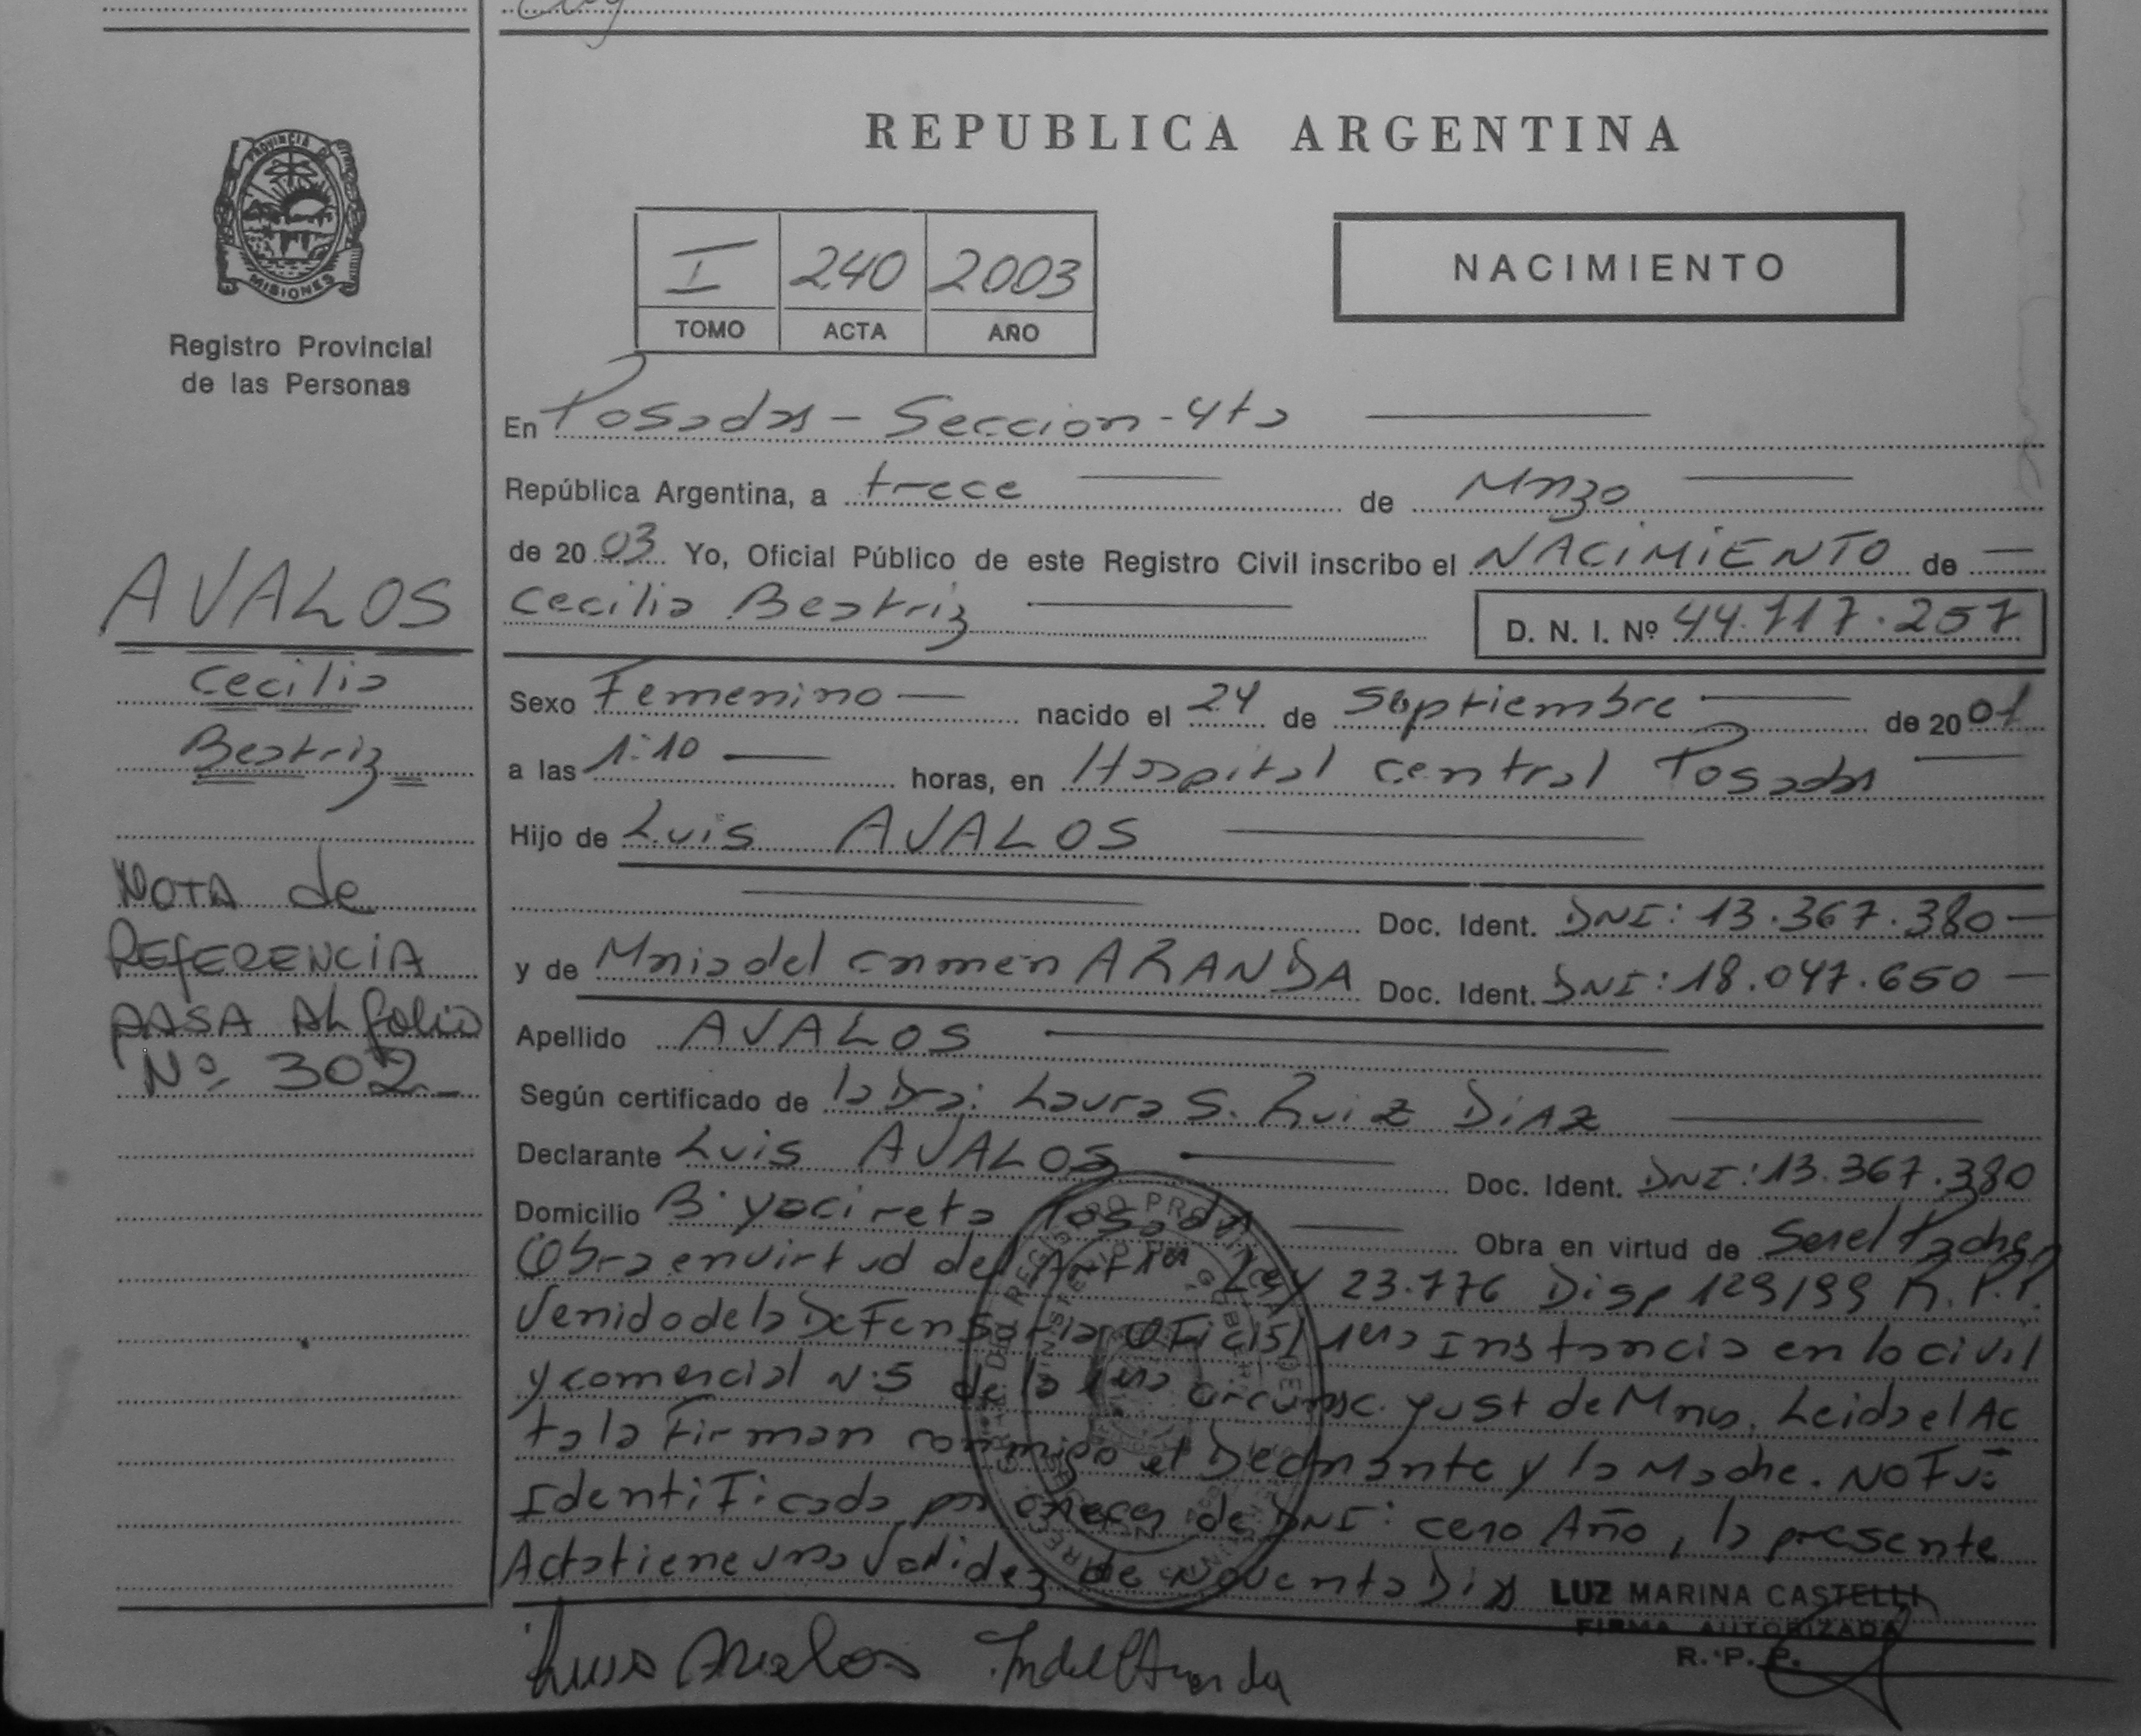 REPUBLICA ARGENTINA
PROVINCIA D
MISIONES
Registro Provincial
de las Personas
I 240 2003
TOMO ACTA AÑO
NACIMIENTO
En Posadas - Seccion - 4ta
República Argentina, a trece de Marzo
de 2003 Yo, Oficial Público de este Registro Civil inscribo el NACIMIENTO de
Cecilia Beatriz D. N. I. Nº 44.717.257
AVALOS
Cecilia
Beatriz
NOTA de
REFERENCIA
PASA AL folio
Nº 302
Sexo Femenino nacido el 24 de Septiembre de 2001
a las 1:10 horas, en Hospital central Posadas
Hijo de Luis AVALOS
Doc. Ident. DNI: 13.367.380
y de Maria del carmen ARANDA Doc. Ident. DNI: 18.047.650
Apellido AVALOS
Según certificado de la Dra: Laura S. Ruiz DiAz
Declarante Luis AVALOS Doc. Ident. DNI: 13.367.380
Domicilio B° yacireta Posadas Obra en virtud de Ser el Padre
Obra en virtud del Art 1er Ley 23.776 Disp 129/99 R.P.P.
Venido de la Defensoria Oficial 1era Instancia en lo civil
y comercial N.5 de la 1era circunsc. yust de Mnes. Leida el Ac
ta la Firman conmigo el Declarante y la Madre. NO Fué
Identificada por carecer de DNI: cero Año, la presente
Acta tiene una Validez de Noventa Dias
LUZ MARINA CASTELLI
FIRMA AUTORIZADA
R. P. P.
Luis Avalos